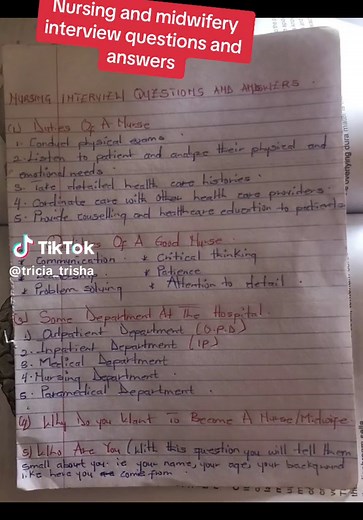 Nursing and midwifery
interview questions and
answers
NURSING INTERVIEW QUESTIONS AND ANSWERS.
(1) Duties Of A Nurse
1. Conduct physical exams.
2. Listen to patient and analyse their physical and
emotional needs.
3. take detailed health care histories.
4. Cordinate care with other health care providers.
5. Provide counselling and healthcare education to patients
Of A Good Nurse
* Communication * Critical thinking
* Patience
* Problem solving * Attention to detail.
TikTok
@tricia_trisha
(3) Some Department At the Hospital
1) Outpatient Department (O.P.D)
2. Inpatient Department (IP)
3. Medical Department
4. Nursing Department.
5. Paramedical Department.
(4) Why Do you Want to Become A Nurse/Midwife
5) Who Are You (With this question you will tell them
small about you. ie your name, your age, your background
like here you come from.